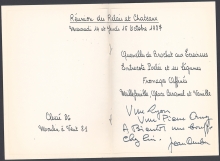 Réunion du Relais et Chateaux
Mercredi 14 et Jeudi 15 Octobre 1987
Quenelles de Brochet aux Ecrevisses
Entrecote Poêlée et ses légumes
Fromages Affinés
Millefeuille, Glace Caramel et Vanille
Chablis 86
Moulin à Vent 83
Vive Lyon
Vive Pierre
A Bientôt
chez
Jean